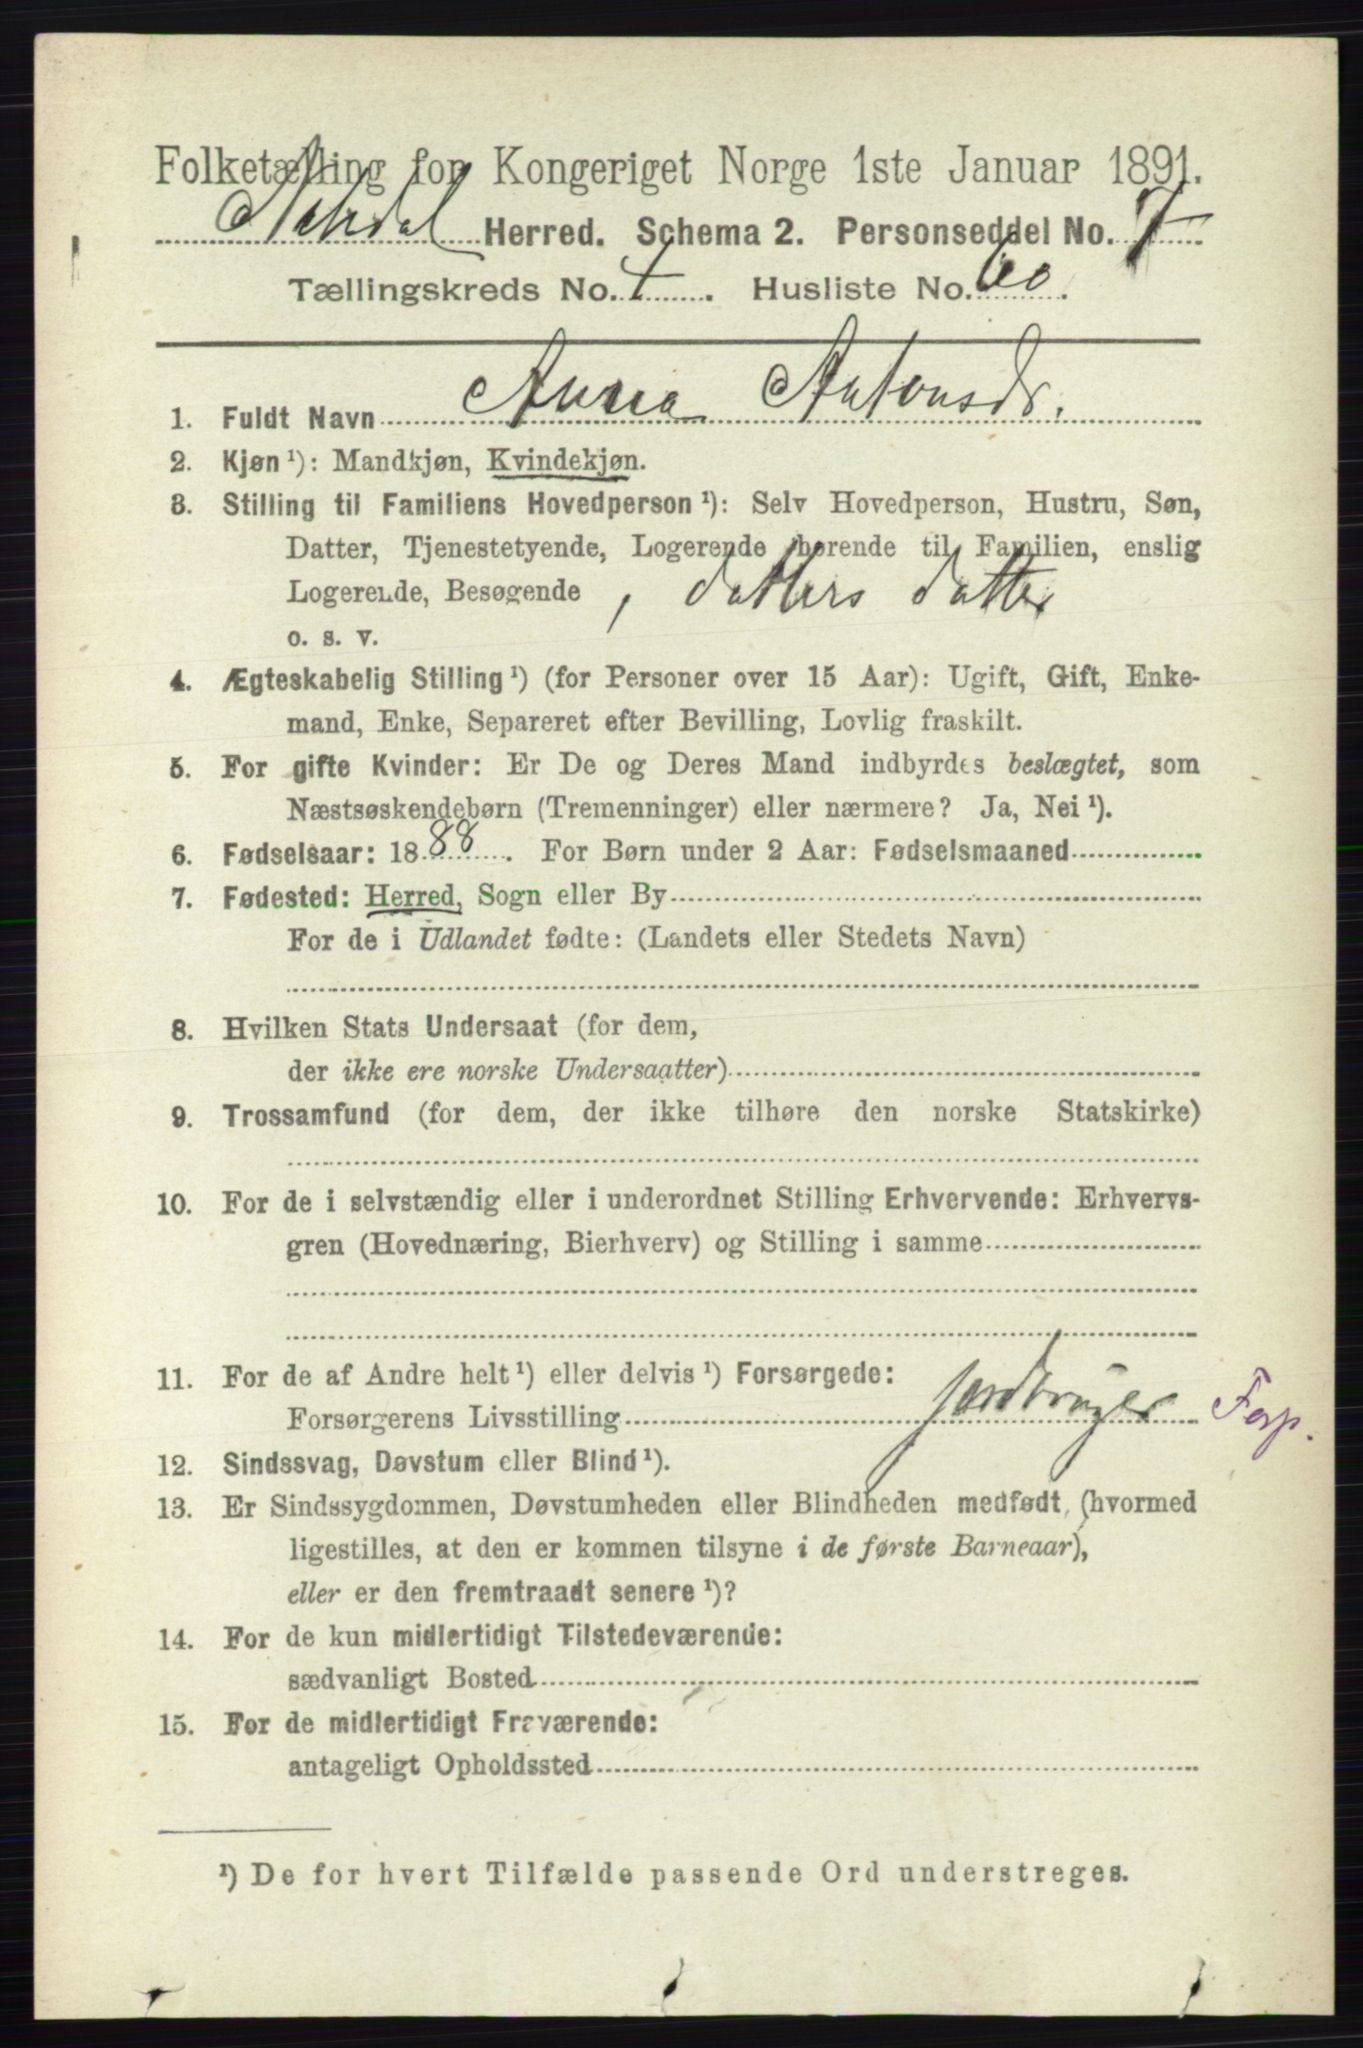 Folketælling for Kongeriget Norge 1ste Januar 1891.
Herred. Schema 2. Personseddel No. 7
Tællingskreds No. 1. Husliste No. 60.
1. Fuldt Navn Anna Antonsdr.
2. Kjøn ¹): Mandkjøn, Kvindekjøn.
3. Stilling til Familiens Hovedperson ¹): Selv Hovedperson, Hustru, Søn,
Datter, Tjenestetyende, Logerende hørende til Familien, enslig
Logerende, Besøgende , datters datter
o. s. v.
4. Ægteskabelig Stilling ¹) (for Personer over 15 Aar): Ugift, Gift, Enke-
mand, Enke, Separeret efter Bevilling, Lovlig fraskilt.
5. For gifte Kvinder: Er De og Deres Mand indbyrdes beslægtet, som
Næstsøskendebørn (Tremenninger) eller nærmere? Ja, Nei ¹).
6. Fødselsaar: 1888. For Børn under 2 Aar: Fødselsmaaned
7. Fødested: Herred, Sogn eller By
For de i Udlandet fødte: (Landets eller Stedets Navn)
8. Hvilken Stats Undersaat (for dem,
der ikke ere norske Undersaatter)
9. Trossamfund (for dem, der ikke tilhøre den norske Statskirke)
10. For de i selvstændig eller i underordnet Stilling Erhvervende: Erhvervs-
gren (Hovednæring, Bierhverv) og Stilling i samme
11. For de af Andre helt ¹) eller delvis ¹) Forsørgede:
Forsørgerens Livsstilling jordbruger Forp.
12. Sindssvag, Døvstum eller Blind ¹).
13. Er Sindssygdommen, Døvstumheden eller Blindheden medfødt, (hvormed
ligestilles, at den er kommen tilsyne i de første Barneaar),
eller er den fremtraadt senere ¹)?
14. For de kun midlertidigt Tilstedeværende:
sædvanligt Bosted
15. For de midlertidigt Fraværende:
antageligt Opholdssted
¹) De for hvert Tilfælde passende Ord understreges.